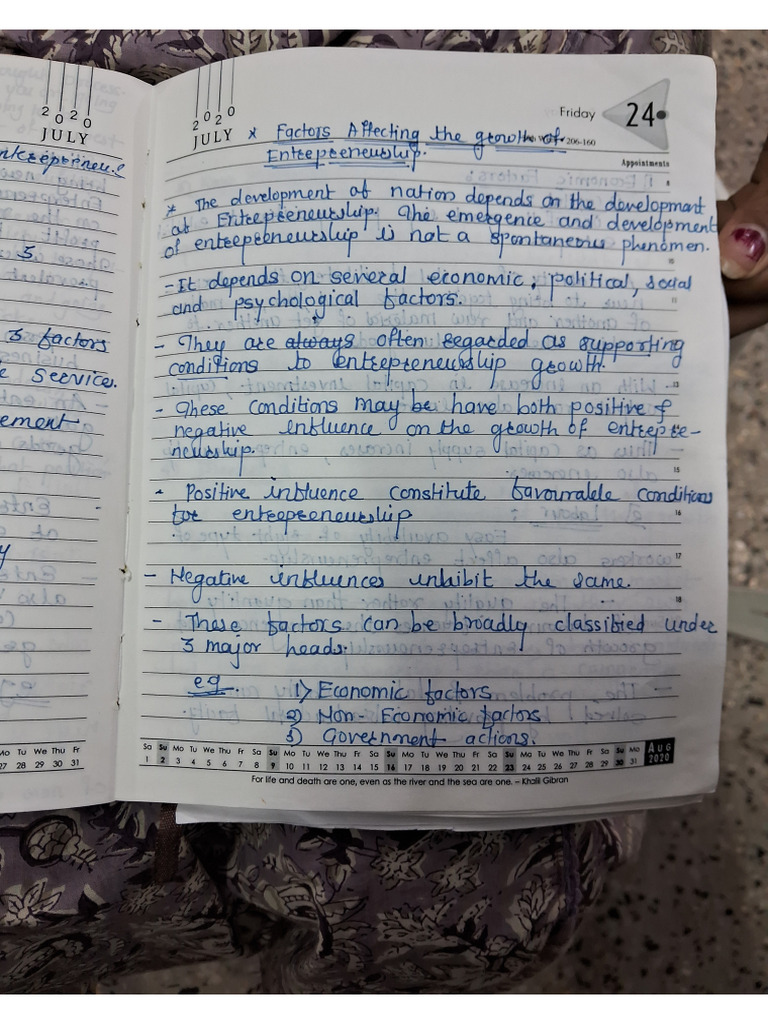 2020
JULY
nkrepreneu
5
3 factors
e service.
ement
y
Mo Tu We Thu Fr
27 28 29 30 31
2020
JULY
Friday 24
206-160
Appointments
* Factors Affecting the growth of
Entrepreneurship.
* The development of nation depends on the development
of Entrepreneurship. The emergence and development
of entrepreneurship is not a spontaneous phenomen.
- It depends on several economic, political, social
and psychological factors.
- They are always often regarded as supporting
conditions to entrepreneurship growth.
- These conditions may be have both positive &
negative influence on the growth of entrepre-
neurship.
- Positive influence constitute favourable conditions
for entrepreneurship
- Negative influences inhibit the same.
- These factors can be broadly classified under
3 major heads.
eg 1) Economic factors
2) Non-Economic factors
3) Government actions.
8
10
11
13
15
16
17
18
Sa Su Mo Tu We Thu Fr Sa Su Mo Tu We Thu Fr Sa Su Mo Tu We Thu Fr Sa Su Mo Tu We Thu Fr Sa Su Mo AUG
1 2 3 4 5 6 7 8 9 10 11 12 13 14 15 16 17 18 19 20 21 22 23 24 25 26 27 28 29 30 31 2020
For life and death are one, even as the river and the sea are one. – Khalil Gibran